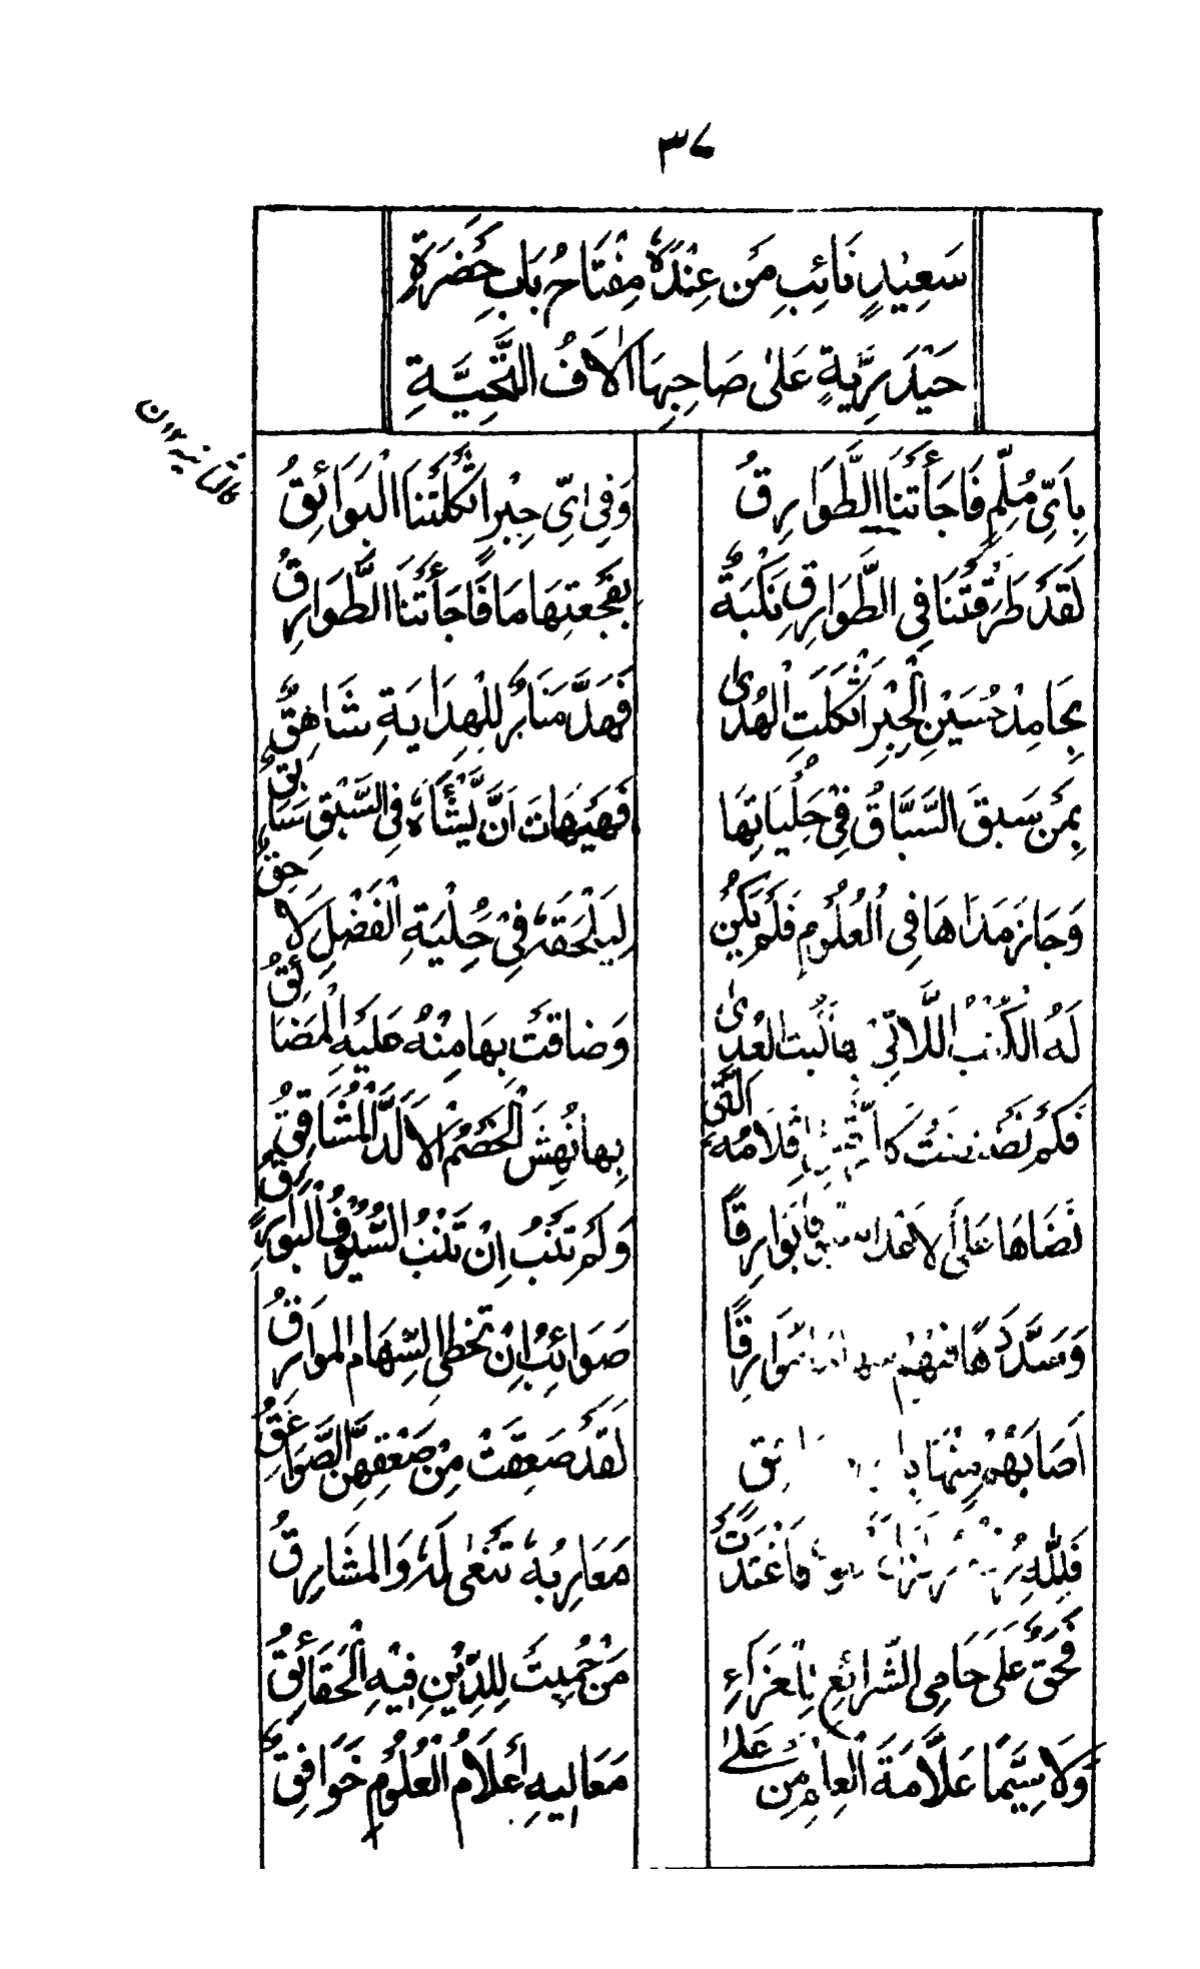 ٣٧
سَعِيْدٍ نَائِبِ مَنْ عِنْدَهُ مِفْتَاحُ بَابِ حَضْرَةٍ
حَيْدَرِيَّةٍ عَلٰى صَاحِبِهَا اٰلَافُ التَّحِيَّةِ
بِاَيِّ مُلِمٍّ فَاجَأَتْنَا الطَّوَارِقُ وَفِي اَيِّ حِبْرٍ اَثْكَلَتْنَا الْبَوَائِقُ
لَقَدْ طَرَقَتْنَا فِي الطَّوَارِقِ نَكْبَةٌ بِفَجْعَتِهَا مَا فَاجَأَتْنَا الطَّوَارِقُ
بِحَامِدْ حُسَيْنِ الْحِبْرِ اَثْكَلَتِ الْهُدٰى فَهَدَّ مَنَارٌ لِلْهِدَايَةِ شَاهِقٌ
بِمَنْ سَبَقَ السَّبَّاقُ فِيْ حَلْيَاتِهَا فَهَيْهَاتَ اَنْ يَشْاَهُ فِي السَّبْقِ سَابِقُ
وَحَازَ مَدَاهَا فِي الْعُلُوْمِ فَلَمْ يَكُنْ لِيَلْحَقَهُ فِيْ حِلْيَةِ الْفَضْلِ لَاحِقُ
لَهُ الْكُتْبُ اللَّاتِيْ بِهَا كُبِتَ الْعِدٰى وَضَاقَتْ بِهَا مِنْهُ عَلَيْهِ الْمَضَائِقُ
فَكَمْ نَضْنَضَتْ اَقْلَامُهُ الَّتِي بِهَا نُهِشَ الْخَصْمُ الْاَلَدُّ الْمُشَاقِقُ
نَضَاهَا عَلَى الْاَعْدَاءِ بَوَارِقًا وَلَمْ تَنْبُ اِنْ تَنْبُ السُّيُوْفُ الْبَوَارِقُ
وَسَدَّدَهَا مَوَارِقًا صَوَائِبُ اِنْ تُخْطِي السِّهَامُ الْمَوَارِقُ
اَصَابَهُمْ مِنْهَا لَقَدْ صَعِقَتْ مِنْ صَعْقِهِنَّ الصَّوَاعِقُ
فَلِلّٰهِ فَاغْتَدَتْ مَغَارِبُهُ تَنْعٰى لَهُ وَالْمَشَارِقُ
فَحَقٌّ عَلَى حَامِى الشَّرَائِعِ بِالْعَزَاءِ مَنْ حُمِيَتْ لِلدِّيْنِ فِيْهِ الْحَقَائِقُ
وَلَاسِيَّمَا عَلَّامَةَ الْعِلْمِ مَنْ عَلٰى مَعَالِيهِ اَعْلَامُ الْعُلُوْمِ خَوَافِقُ